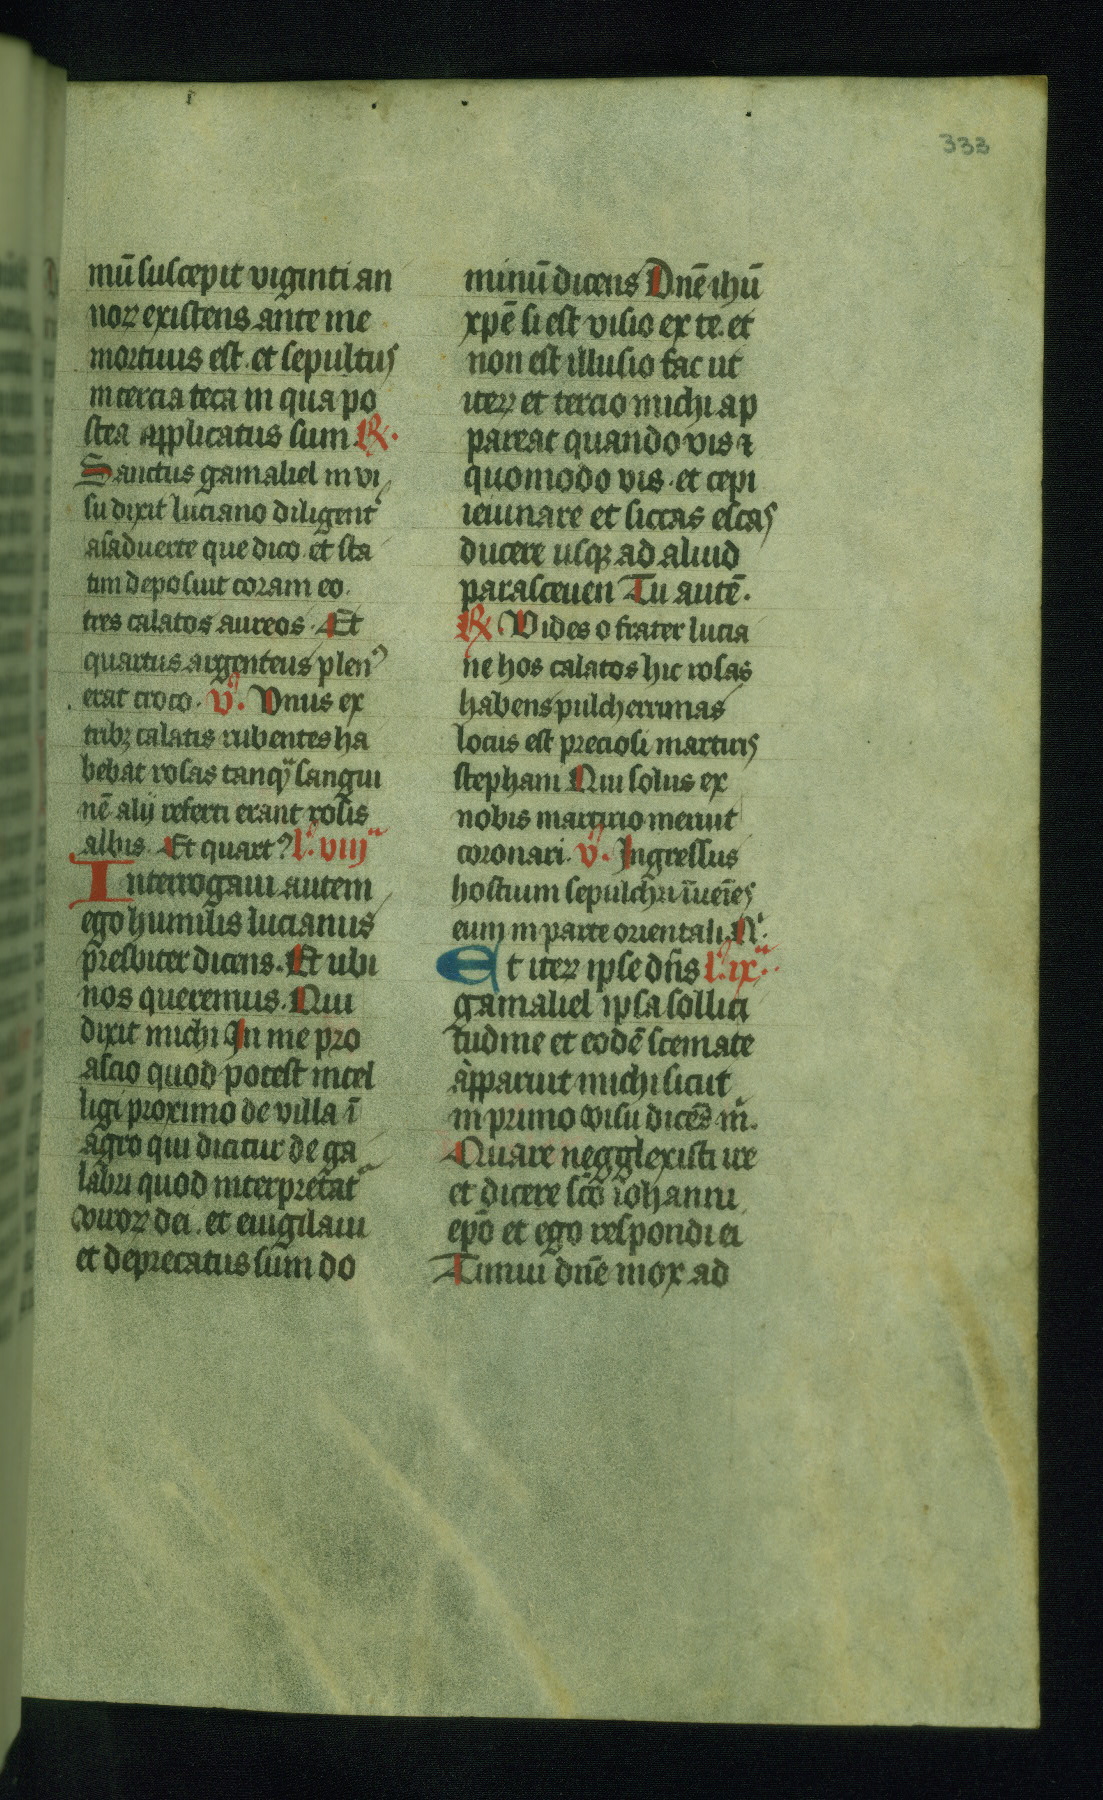 333
mū suscepit viginti an
noꝝ existens ante me
mortuus est. et sepultus
in tercia teca in qua po
stea applicatus sum ℟.
Sanctus gamaliel in vi
su dixit luciano diligent᷑
aīaduerte que dico. et sta
tim deposuit coram eo.
tres calatos aureos. Et
quartus argenteus plenꝰ
erat croco. v̊. Vnus ex
tribꝫ calatis rubentes ha
bebat rosas tanqͣ sangui
nē alij referti erant rosis
albis. Et quartꝰ lͦ. viijͣ
Interrogaui autem
ego humilis lucianus
presbiter dicens. Et ubi
nos queremus. Qui
dixit michi In me pro
ascio quod potest intel
ligi proximo de villa ī
agro qui dicitur de ga
labri quod interpretat᷑
viroꝝ dei. et euigilaui
et deprecatus sum do
minū dicens Dn̄e ihū
xpē si est visio ex te. et
non est illusio fac ut
iteꝝ et tercio michi ap
pareat quando vis ⁊
quomodo vis. et cepi
ieiunare et siccas escas
ducere usqꝫ ad aliud
parasceuen Tu autē.
℟. Vides o frater lucia
ne hos calatos hic rosas
habens pulcherrimas
locus est preciosi martiris
stephani Qui solus ex
nobis martirio meruit
coronari. v̊. Ingressus
hostium sepulchri īueīes
eum in parte orientali. Qͥ.
Et iteꝝ ipse dn̄s lͦ. ixͣ.
gamaliel ipsa sollici
tudine et eodē scemate
apparuit michi sicut
in primo visu dicēs mͥ.
Quare negglexisti ire
et dicere scō iohanni
epō et ego respondi ei
Timui dn̄e mox ad